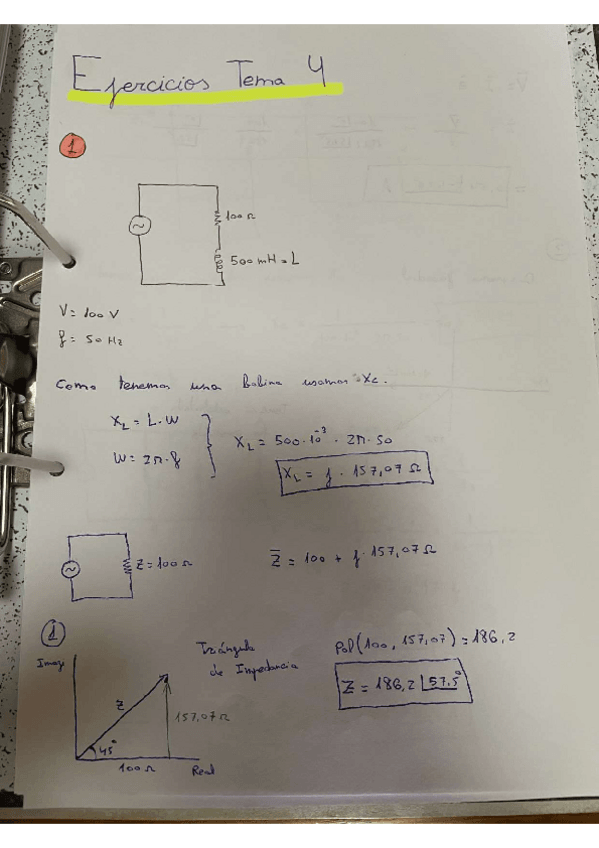 Ejercicios Tema 4
1
100 Ω
500 mH = L
V = 100 V
f = 50 Hz
Como tenemos una Bobina usamos XL.
XL = L · W
W = 2π · f
XL = 500 · 10^-3 · 2π · 50
XL = j · 157,07 Ω
Z = 100 Ω
Z̅ = 100 + j · 157,07 Ω
1
Imag
Z
45°
157,07 Ω
100 Ω
Real
Triángulo
de Impedancia
Pol(100, 157,07) = 186,2
Z = 186,2 |57,5°